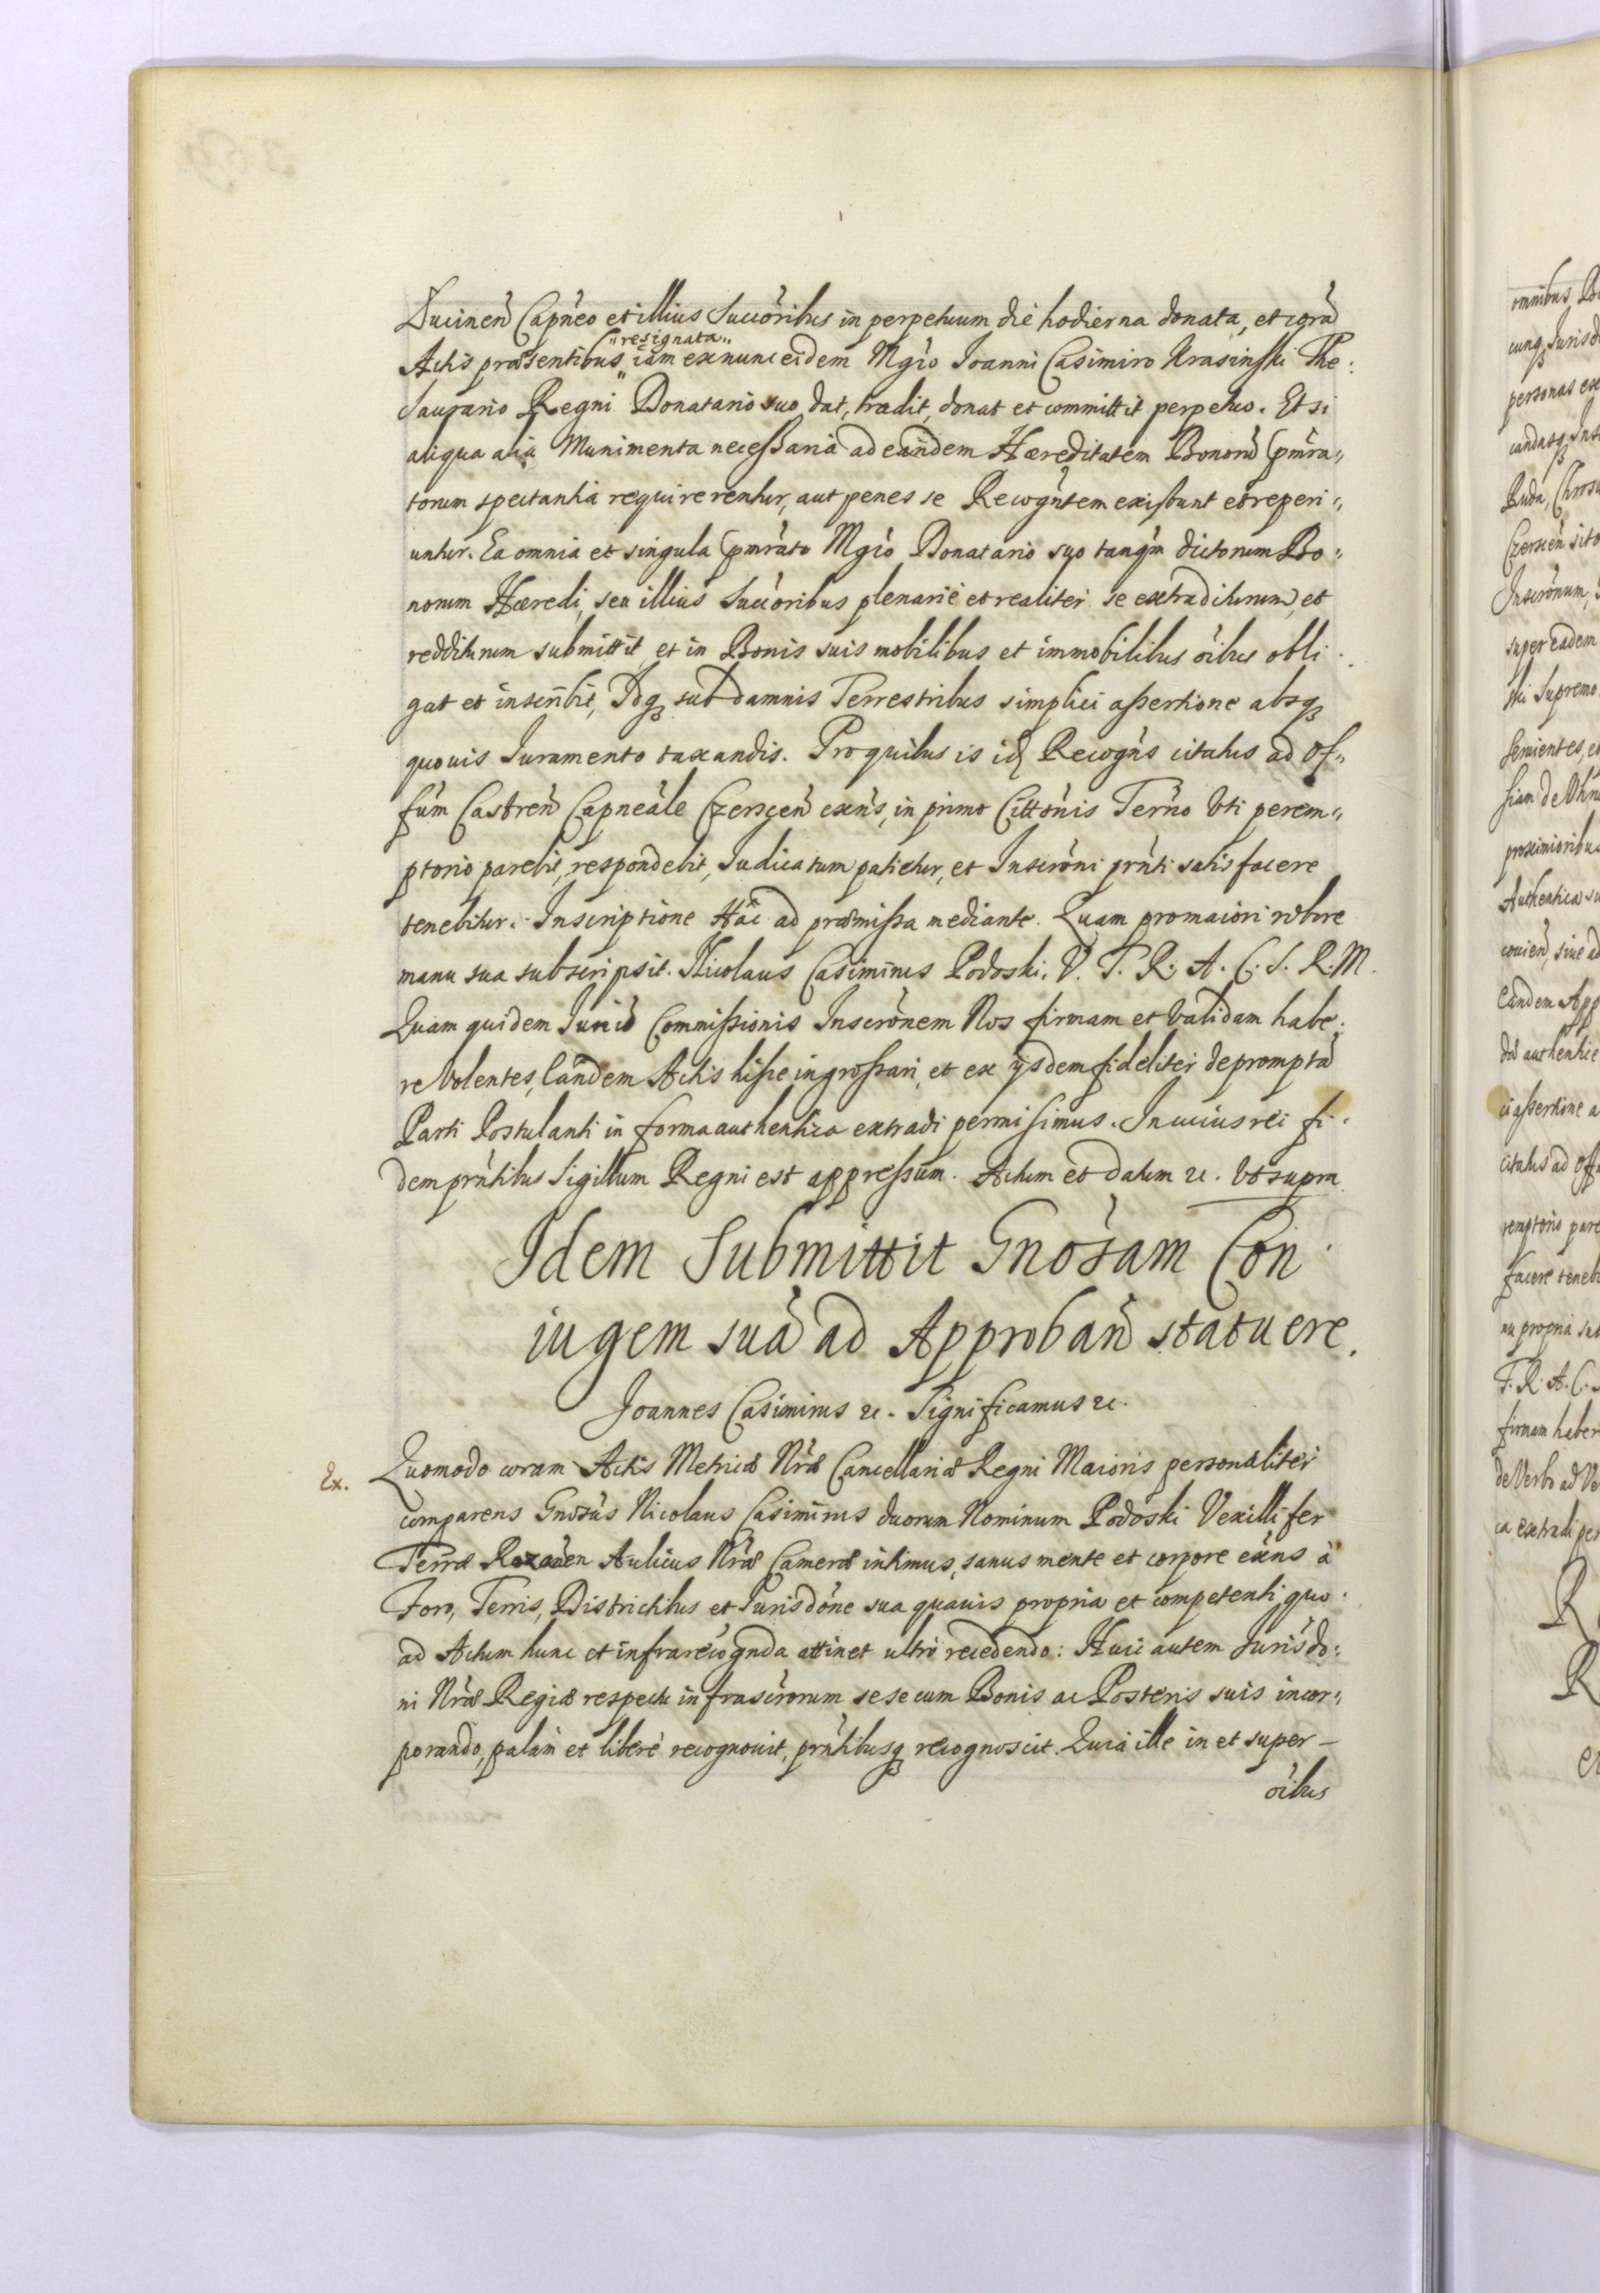 Ducinen Capneo et illius Succoribus in perpetuum die hodierna donata, et corã
„resignata„
Actis præsentibus iam ex nunc eidem Mgco Joanni Casimiro Krasinski The:
saurario Regni Donatario suo dat, tradit, donat et committit perpetuo. Et si
aliqua alia Munimenta necessaria ad eandem Hæreditatem Bonorũ pmra„
torum spectantia requirerentur, aut penes se Recogntem existunt et reperi„
untur. Ea omnia et singula pmrato Mgco Donatario suo tanqm dictorum Bo„
norum Hæredi, seu illius Succoribus plenarie et realiter se extraditurum, et
redditurum submittit, et in Bonis suis mobilibus et immobilibus oibus obli.
gat et inscribit, Idq sub damnis Terrestribus simplici assertione absq
quovis Juramento taxandis. Pro quibus is id Recogns citatus ad Of„
fum Castren Capneale Czerscen exns, in primo Cittonis Terno Uti perem„
ptorio parebit, respondebit, Judicatum patietur, et Inscroni prnti satisfacere
tenebitur. Inscriptione Hac ad præmissa mediante. Quam pro maiori robore
manu sua subscripsit. Nicolaus Casimirus Podoski, V. T. R. A. C. S. R. M.
Quam quidem Commissionis Inscronem Nos firmam et Validam habe.
re Volentes, Eandem Actis hisce ingrossari, et ex ijsdem fideliter depromptã
Parti Postulanti in forma authentica extradi permisimus. In cuius rei fi.
dem prntibus Sigillum Regni est appressum. Actum et datum &c. Ut supra
Idem Submittit Gnosam Con
iugem suã ad Approban̄ statuere.
Joannes Casimirus &c. Significamus &c.
Ex.
Quomodo coram Actis Metricæ Nræ Cancellariæ Regni Maioris personaliter
comparens Gnosus Nicolaus Casimirus duorum Nominum Podoski Vexillifer
Terræ Rozanen Aulicus Nræ Cameræ intimus, sanus mente et corpore exns à
Foro, Terris, Districtibus et Jurisdone sua quavis propria et competenti, quo.
ad Actum hunc et infra recognda attinet ultro recedendo: Huic autem Jurisdo:
ni Nræ Regiæ respectu infrascrorum sese cum Bonis ac Posteris suis incor„
porando, palam et liberè recognovit, prntibusq recognoscit. Quia ille in et super –
oibus